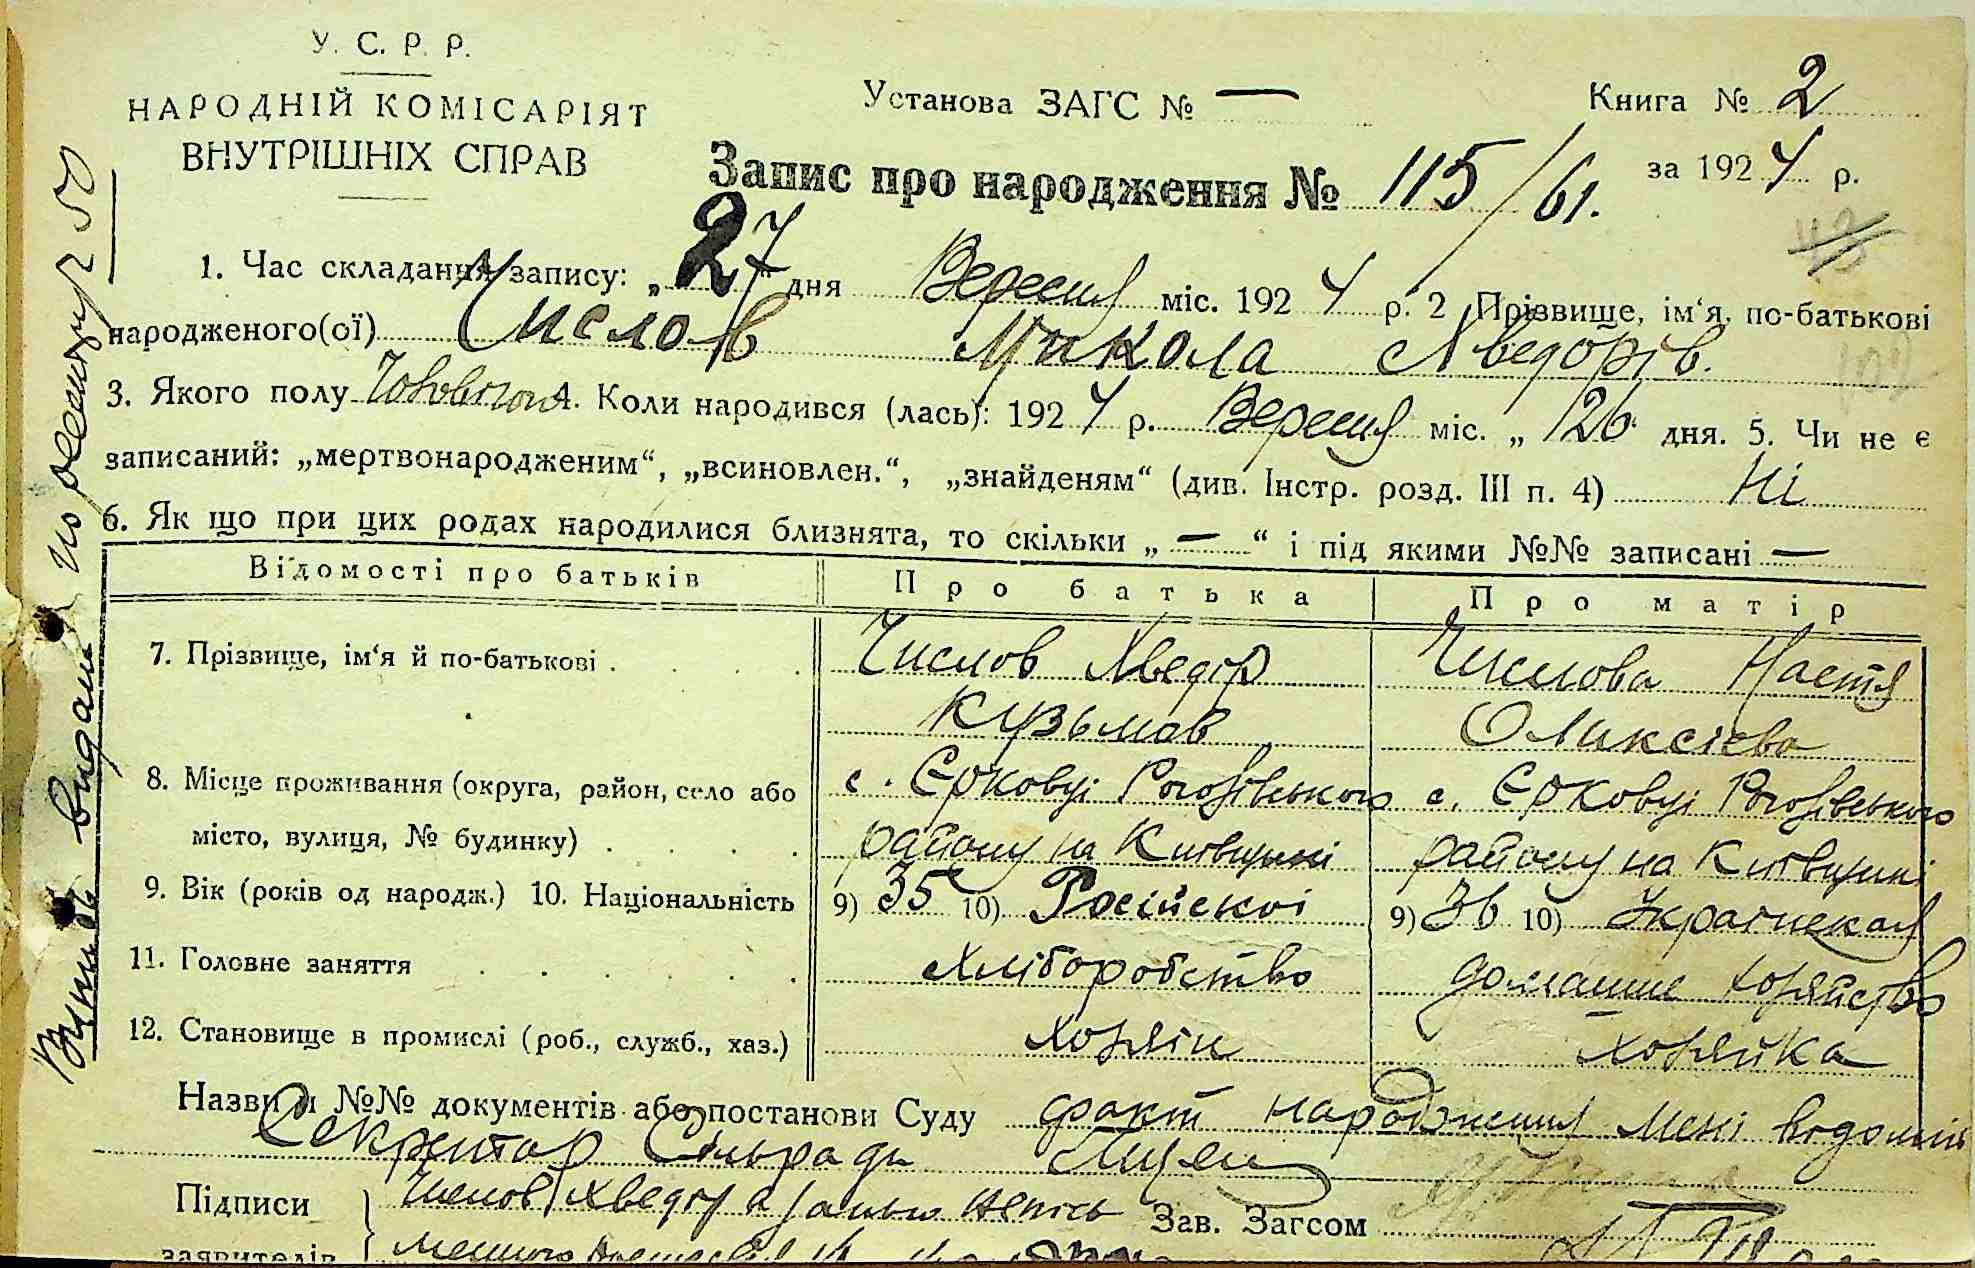 У. С. Р. Р.
НАРОДНІЙ КОМІСАРІЯТ
ВНУТРІШНІХ СПРАВ
Установа ЗАГС № —
Книга № 2
за 1924 р.
Запис про народження № 115/61.
1. Час складання запису: „27“ дня Вересня міс. 1924 р. 2 Прізвище, ім‘я, по-батькові
народженого(ої) Числов Микола Хведорів.
3. Якого полу Чоловічої 4. Коли народився (лась): 1924 р. Вересня міс. „ 26 дня. 5. Чи не є
записаний: „мертвонародженим“, „всиновлен.“, „знайденям“ (див. Інстр. розд. III п. 4) Ні
6. Як що при цих родах народилися близнята, то скільки „ — “ і під якими №№ записані —
Відомості про батьків Про батька Про матір
7. Прізвище, ім‘я й по-батькові . Числов Хведір Числова Настя
Кузьмов Оликсієва
8. Місце проживання (округа, район, село або с. Єрковці Рогозівського с. Єрковці Рогозівського
місто, вулиця, № будинку) . району на Київщині району на Київщині
9. Вік (років од народж.) 10. Національність 9) 35 10) Російскої 9) 36 10) Українская
11. Головне заняття хліборобство домашне хозяйство
12. Становище в промислі (роб., служб., хаз.) хозяін хозяйка
Назви й №№ документів або постанови Суду факт народження мені відомий
Секретар Сільради
Підписи Числов Хведір Зав. Загсом
заявителів